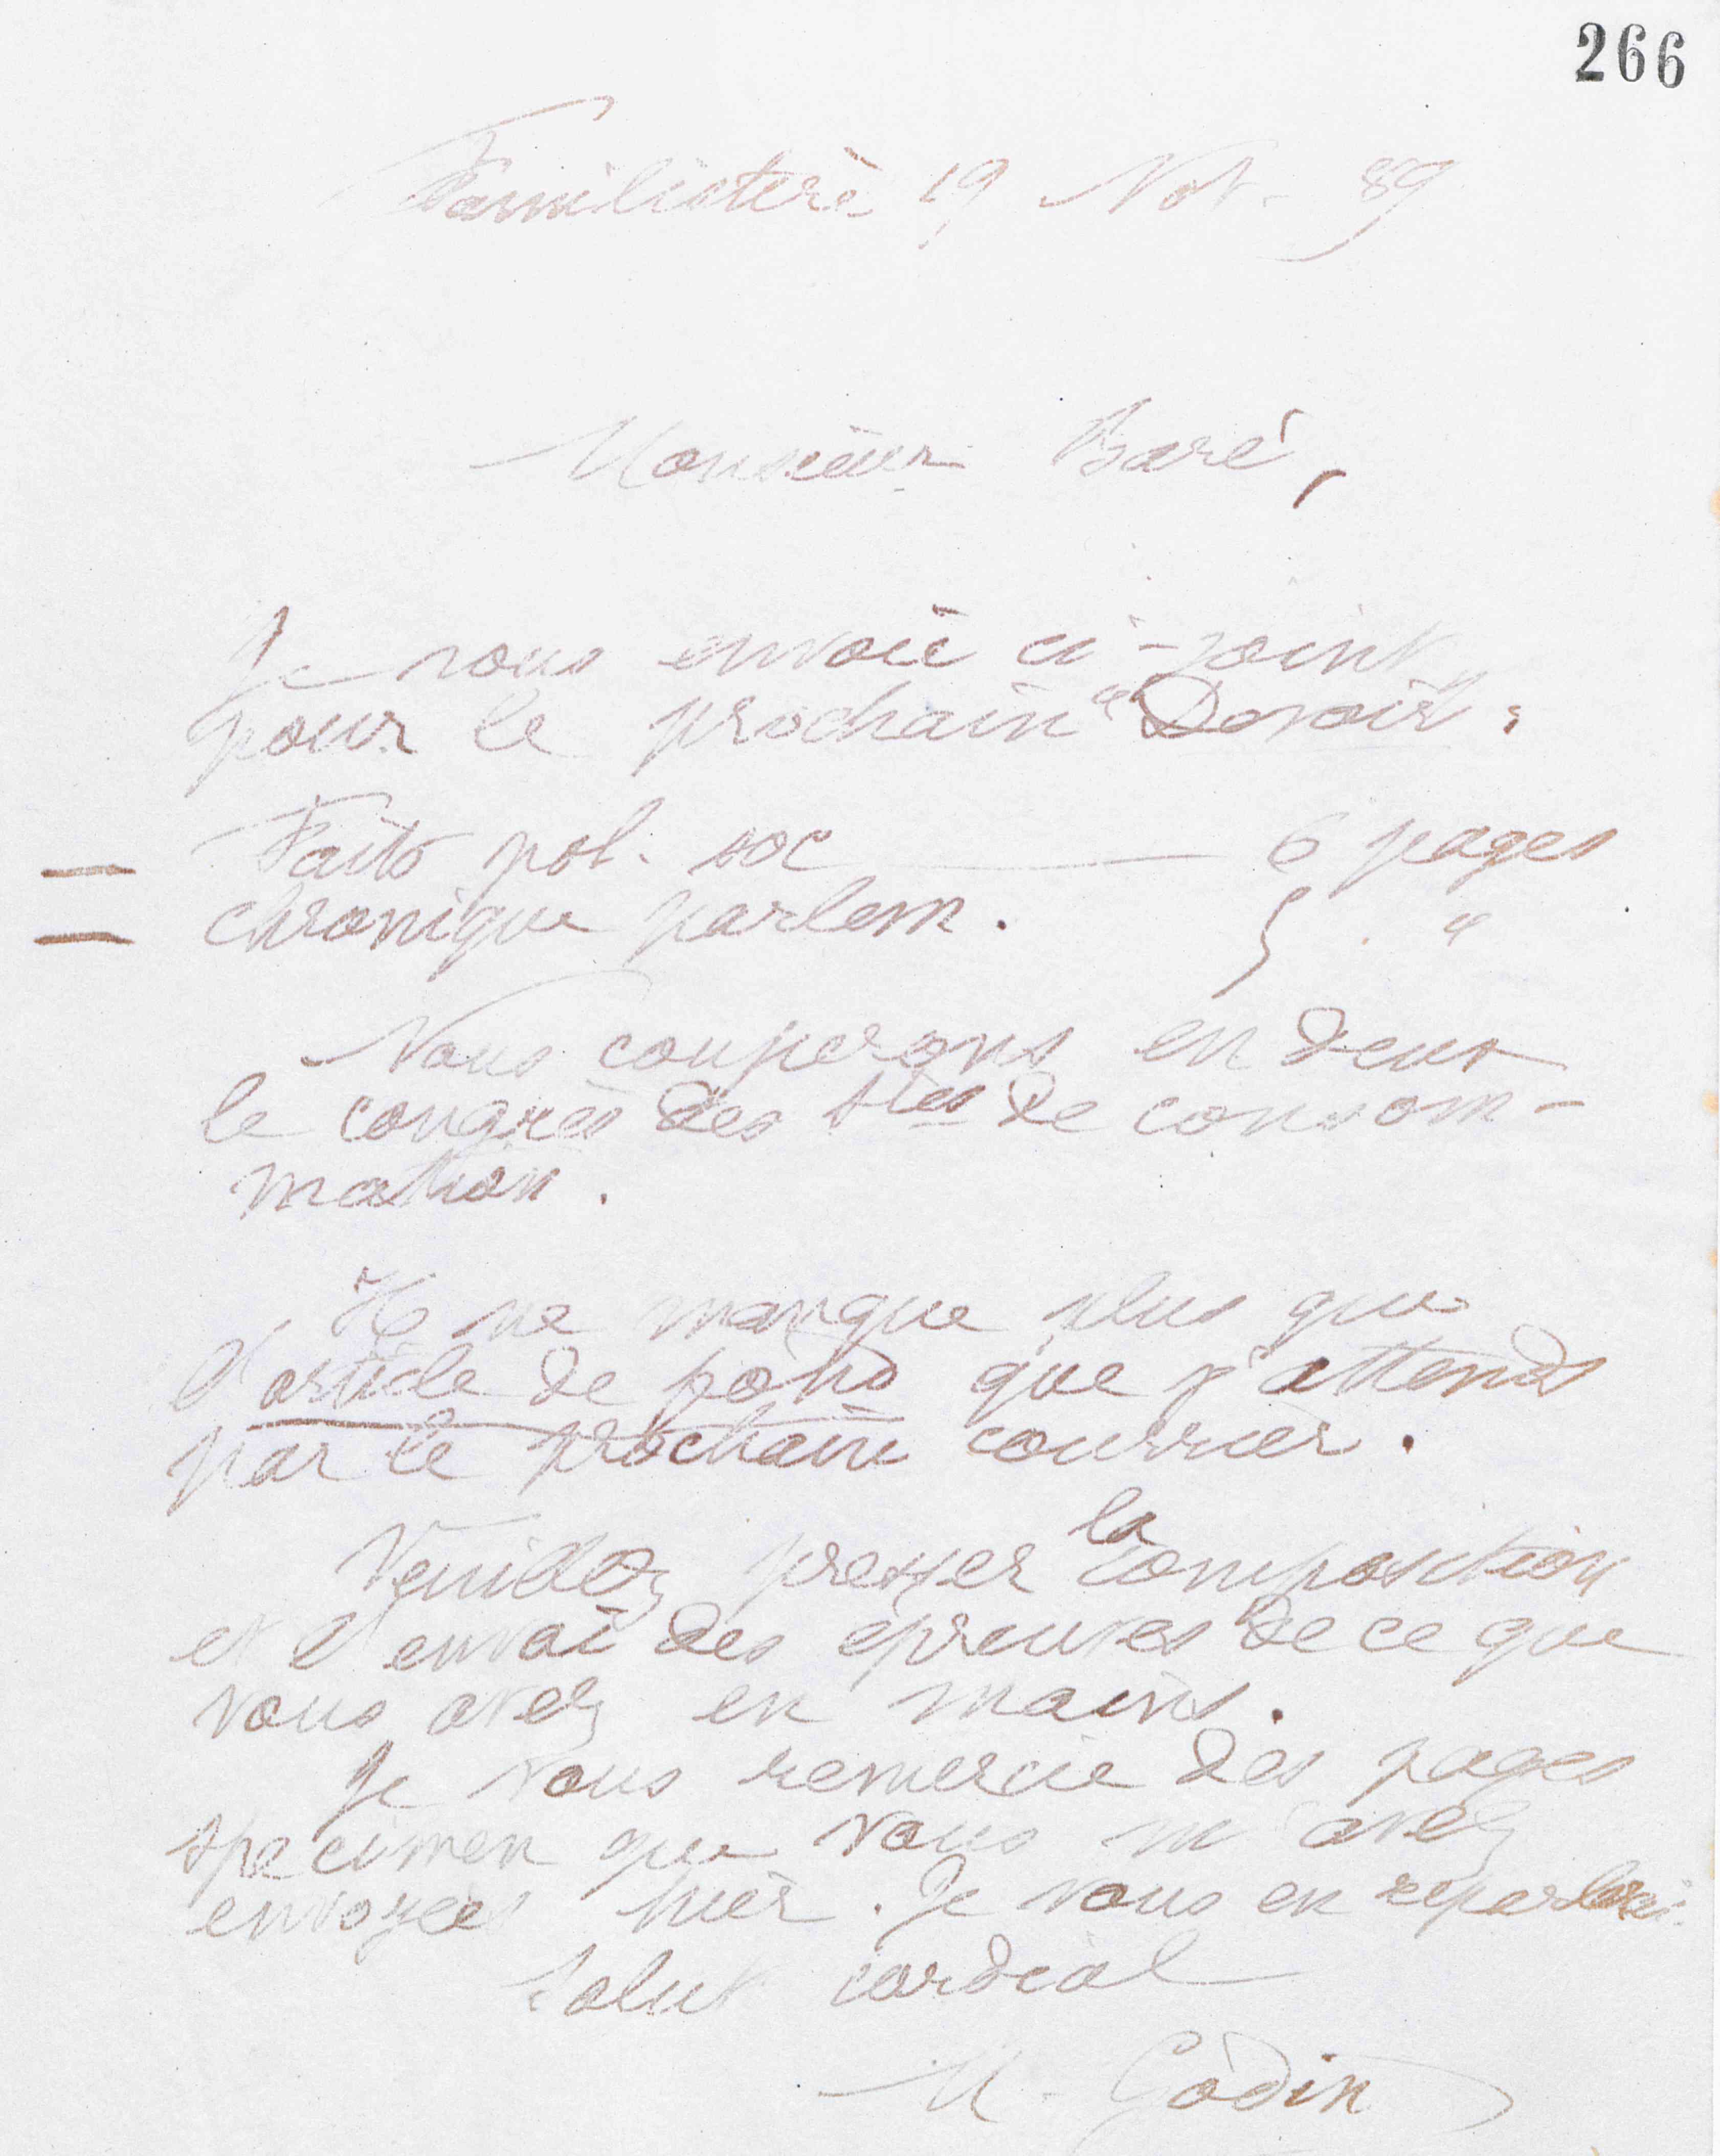 266
Familistère 19 Nov. 89
Monsieur Baré,
Je vous envoie ci-joint
pour le prochain "Devoir" :
Faits pol. soc — 6 pages
chronique parlem. 5 "
Nous couperons en deux
le congrès des stés de consom-
mation.
Il ne manque plus que
l'article de fond que j'attends
par le prochain courrier.
Veuillez presser la composition
et l'envoi des épreuves de ce que
vous avez en mains.
Je vous remercie des pages
specimen que vous m'avez
envoyées hier. Je vous en reparlerai.
Salut cordial
M. Godin